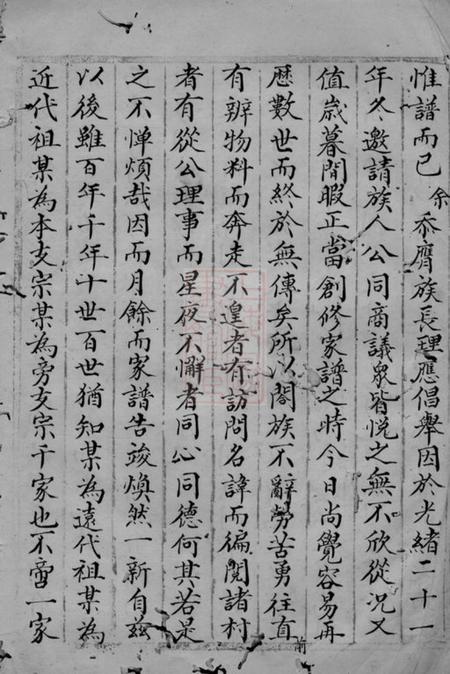 惟譜而已余忝膺族長理應倡舉因於光緒二十一
年冬邀請族人公同商議衆皆悅之無不欣從況又
值歲暮閒暇正當創修家譜之時今日尚覺容易再
歷數世而終於無傳矣所以閤族不辭勞苦勇往直前
有辨物料而奔走不遑者有訪問名諱而徧閱諸村
者有從公理事而星夜不懈者同心同德何其若是
之不憚煩哉因而月餘而家譜告竣煥然一新自兹
以後雖百年千年十世百世猶知某為遠代祖某為
近代祖某為本支宗某為旁支宗千家也不啻一家